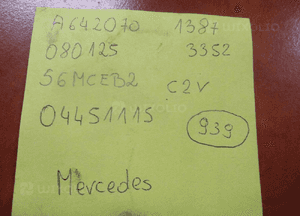 A642070 1387
080125 3352
S6MCEB2 C2V
04451115 939
Mercedes